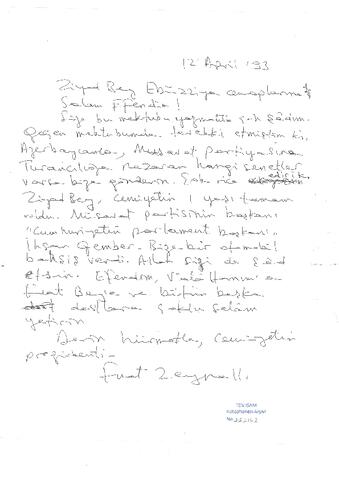 12 April '93
Ziyad Bey Ebüzziya cenaplarına
Salam Efendim!
Size bu mektubu yazmakla çok şadım.
Qeçen mektubumda ki,
Azerbaycanda, Musavat partiyasına
Turancılığa nazaran hangi senetler
varsa bize gönderin. Çok rica edirik.
Ziyad Bey, Cemiyetin 1 yaşı tamam
oldu. Musavat partisinin başkanı
"Cumhuriyetin parlament başkanı"
İhsar Qember. Bize bir otomobil
bahşiş verdi. Allah sizi de şad
etsin. Efendim, Hanım'a
Fırat Beye ve bütün başka
dostlara çoklu selâm
yetirin.
Derin hürmetle, cemiyetin
prezidenti -
Fuat Zeynallı.
TDV İSAM
Kütüphanesi Arşivi
No